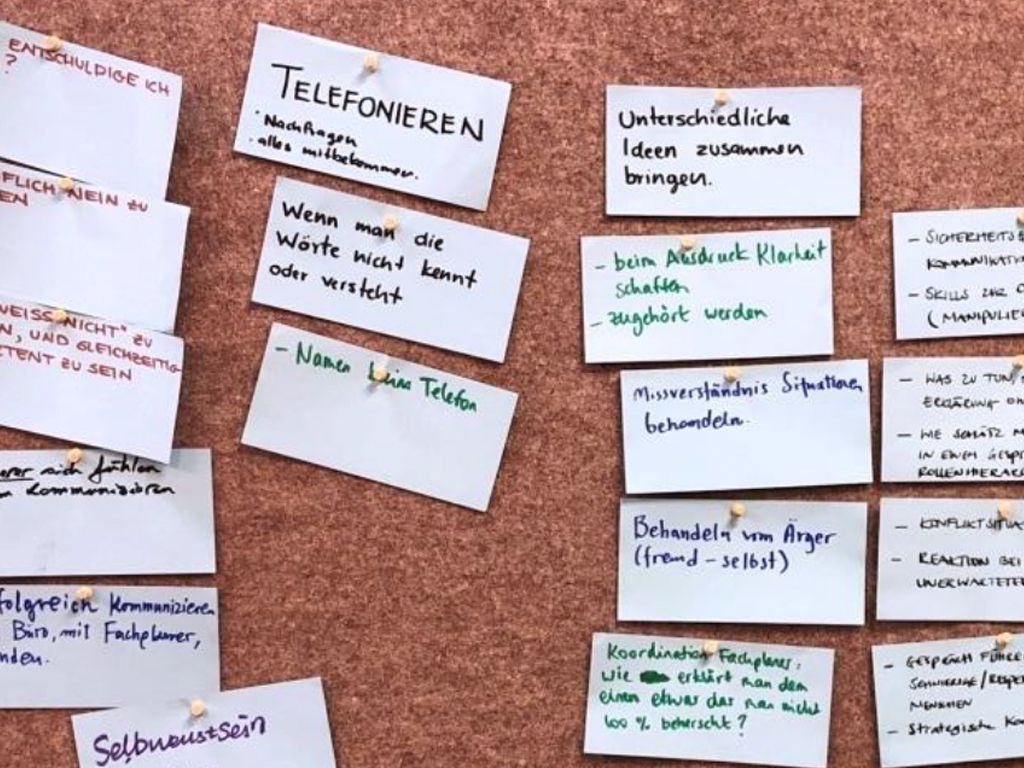 ENTSCHULDIGE ICH
?
FLICH NEIN ZU
EN
WEISS NICHT" ZU
N, UND GLEICHZEITIG
TENT ZU SEIN
sich fühlen
kommunizieren
folgreich kommunizieren
Büro, mit Fachplaner,
nden.
Selbwustsein
TELEFONIEREN
· Nachfragen
· alles mitbekommen.
Wenn man die
Wörte nicht kennt
oder versteht
- Namen beim Telefon
Unterschiedliche
Ideen zusammen
bringen.
- beim Ausdruck Klarheit
schaffen
- zugehört werden
Missverständnis Situationen
behandeln.
Behandeln vom Ärger
(fremd - selbst)
Koordination Fachplaner:
wie erklärt man dem
einen etwas das man nicht
100 % beherscht?
- SICHERHEITS
KOMMUNIKATIO
- SKILLS ZUR
(MANIPULIE
- WAS ZU TUN,
ERKLÄRUNG
- WIE SCHÄTZ
IN EINEM GESPR
ROLLENHIERAR
- KONFLIKTSITUA
- REAKTION BEI
UNERWARTETEN
- GESPRÄCH FÜHREN
SCHWIERIGE/RESPE
MENSCHEN
- Strategische Ko